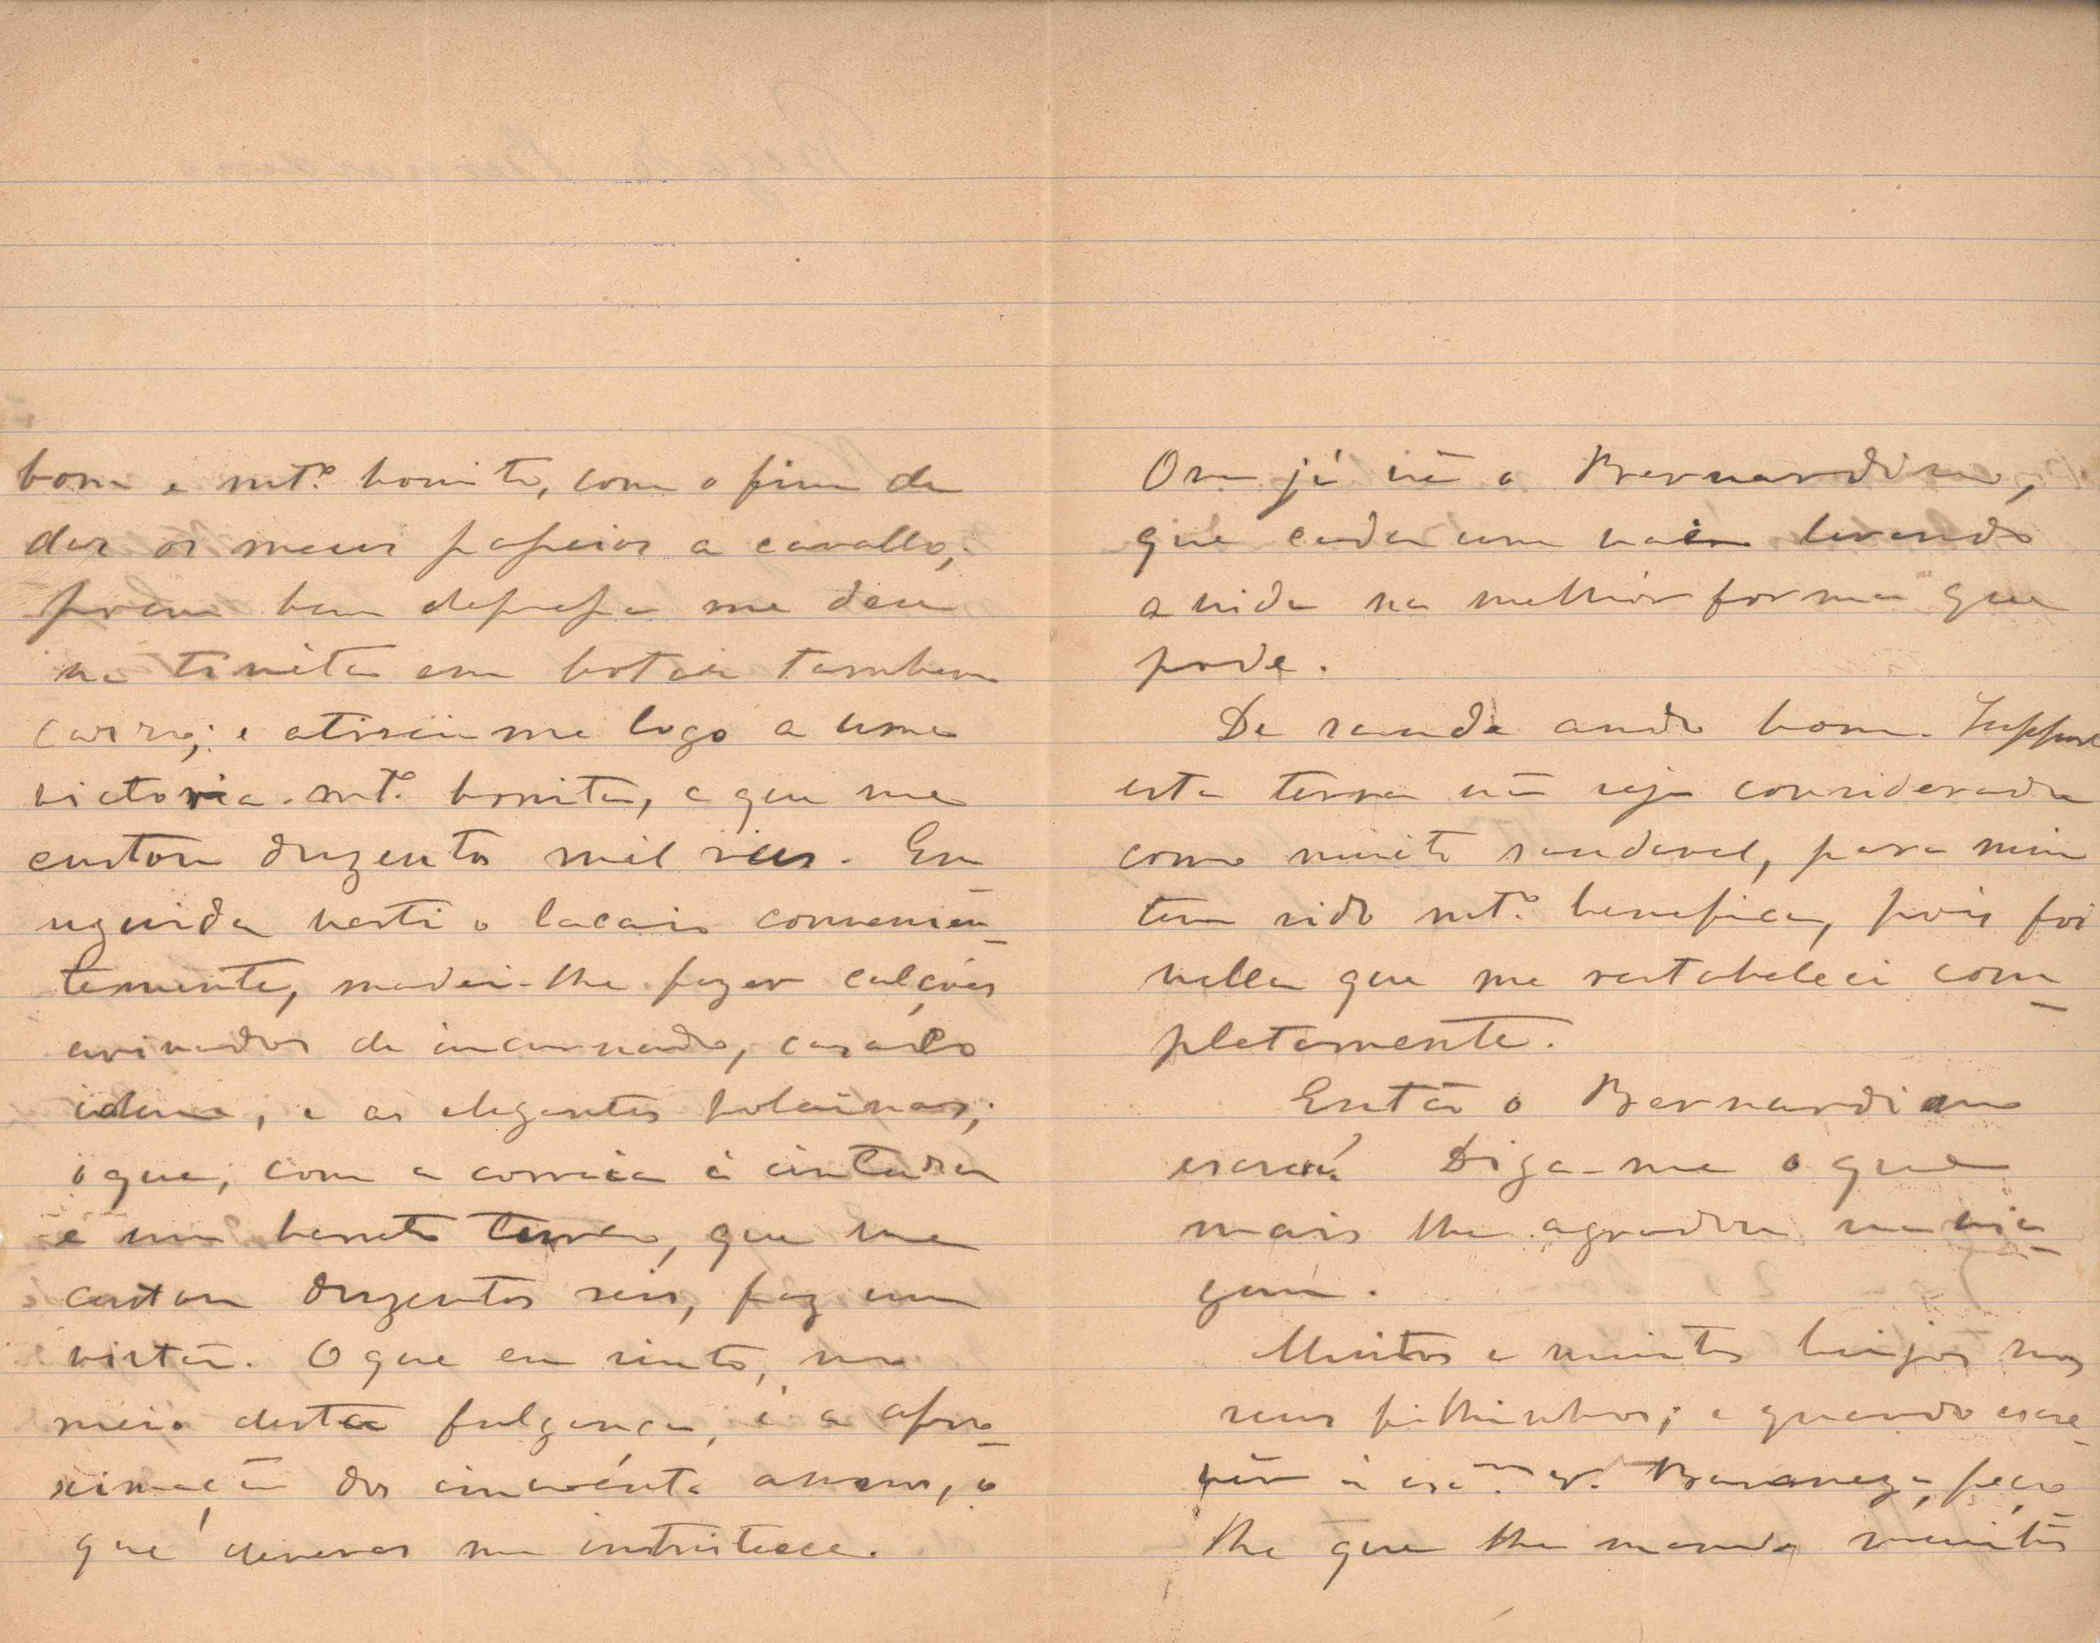 bom e mtº bonito, com o fim de
dar os meus passeios a cavallo;
porem bem depressa me deu
na tineta em botar tambem
carro; e atirei-me logo a uma
victoria mtº bonita, e que me
custou duzentos mil reis. Em
seguida vesti o lacaio convenien-
temente, mandei-lhe fazer calções
avivados de incarnado, casaco
idem, e as elegantes polainas;
o que, com a correia á cintura
e um barrete turco, que me
custou duzentos reis, faz um
vistão. O que eu sinto, no
meio desta fulgencia, é a apro-
ximação dos cincoénta annos, o
que deveras me intristece.
Ora já vê o Bernardino,
que cada um vai levando
a vida na melhor forma que
pode.
De saude ando bom. Suppose
esta terra nã seja considerada
como muito saudavel, para mim
tem sido mtº benefica, pois foi
nella que me restabeleci com-
pletamente.
Então o Bernardino
escreva? Diga-me o que
mais lhe agradou na via-
gem.
Muitos e muitos beijos nos
seus filhinhos; e quando escre-
vêr á exma. sr. Baroneza, peço
lhe que lhe mande muitos